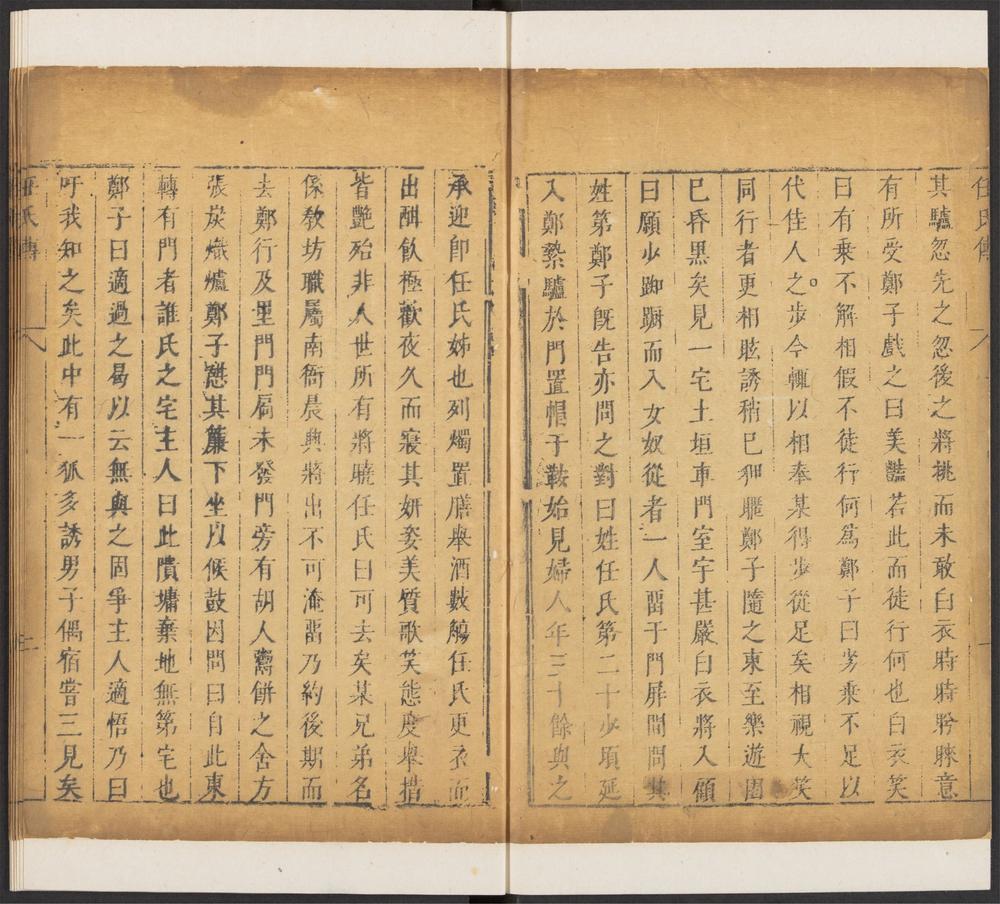 任氏傳 八 一
其驢忽先之忽後之將挑而未敢白衣時時盻睞意
有所受鄭子戲之曰美豔若此而徒行何也白衣笑
曰有乗不解相假不徒行何爲鄭子曰劣乗不足以
代佳人之步今輒以相奉某得步從足矣相視大笑
同行者更相眩誘稍已狎暱鄭子隨之東至樂遊園
已昏黑矣見一宅土垣車門室宇甚嚴白衣將入顧
曰願少踟蹰而入女奴從者一人留于門屏間問其
姓第鄭子既告亦問之對曰姓任氏第二十少頃延
入鄭縶驢於門置帽于鞍始見婦人年三十餘與之
承迎卽任氏姊也列燭置膳舉酒數觴任氏更衣而
出酣飲極歡夜久而寢其妍姿美質歌笑態度舉措
皆艷殆非人世所有將曉任氏曰可去矣某兄弟名
係教坊職屬南衙晨興將出不可淹留乃約後期而
去鄭行及里門門扃未發門旁有胡人鬻餅之舍方
張炭熾爐鄭子憇其簾下坐以候鼓因問曰自此東
轉有門者誰氏之宅主人曰此隤墉棄地無第宅也
鄭子曰適過之曷以云無與之固爭主人適悟乃曰
吁我知之矣此中有一狐多誘男子偶宿嘗三見矣
任氏傳 八 二